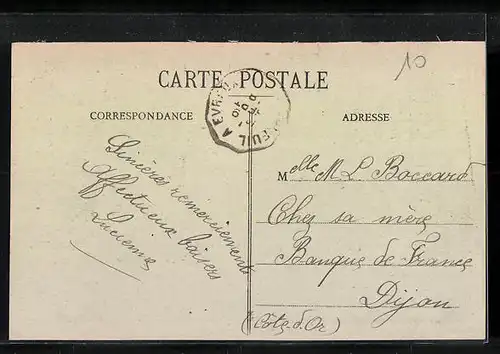 10
CARTE POSTALE
CORRESPONDANCE
ADRESSE
EUIL A EVR
Sincères remerciements
Affectueux baisers
Lucienne
Melle M L Boccard
Chez sa mère
Banque de France
Dijon
(Côte d'Or)